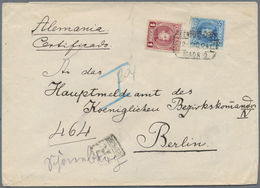 Alemania
Certificado
An das
Hauptmeldeamt des
Koeniglichen Bezirkskomando
IV
464
Berlin.
Schöneberg